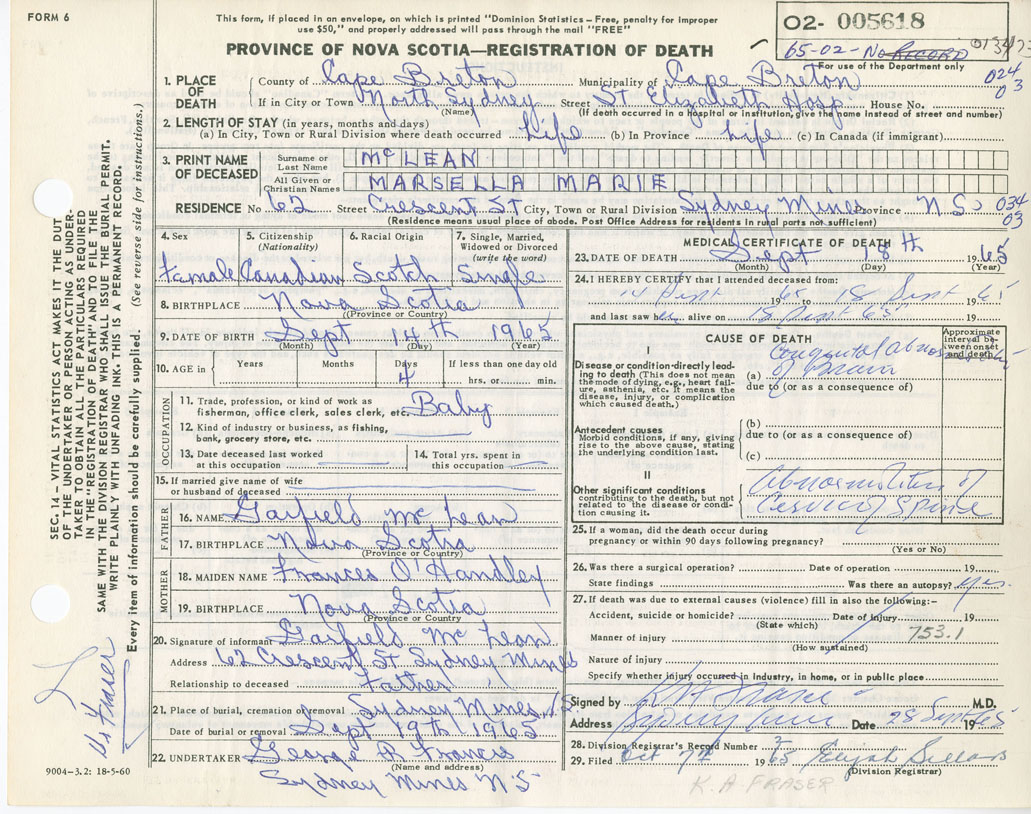 FORM 6
This form, if placed in an envelope, on which is printed "Dominion Statistics – Free, penalty for improper
use $50," and properly addressed will pass through the mail "FREE"
O2- 005618
65-02- No RECORD
For use of the Department only
024
03
PROVINCE OF NOVA SCOTIA—REGISTRATION OF DEATH
1. PLACE OF DEATH
County of Cape Breton Municipality of Cape Breton
If in City or Town North Sydney Street St Elizabeth Hosp. House No.
(Name) (If death occurred in a hospital or institution, give the name instead of street and number)
2. LENGTH OF STAY (in years, months and days)
(a) In City, Town or Rural Division where death occurred Life (b) In Province Life (c) In Canada (if immigrant)
3. PRINT NAME OF DECEASED
Surname or Last Name McLEAN
All Given or Christian Names MARSELLA MARIE
RESIDENCE No 62 Street Crescent St City, Town or Rural Division Sydney Mines Province N S
034
03
(Residence means usual place of abode. Post Office Address for residents in rural parts not sufficient)
4. Sex Female
5. Citizenship (Nationality) Canadian
6. Racial Origin Scotch
7. Single, Married, Widowed or Divorced (write the word) Single
8. BIRTHPLACE Nova Scotia
(Province or Country)
9. DATE OF BIRTH Sept 14th 1965
(Month) (Day) (Year)
10. AGE in Years Months Days 4 If less than one day old hrs. or min.
OCCUPATION
11. Trade, profession or kind of work as
fisherman, office clerk, sales clerk, etc. Baby
12. Kind of industry or business, as fishing,
bank, grocery store, etc.
13. Date deceased last worked
at this occupation
14. Total yrs. spent in
this occupation
15. If married give name of wife
or husband of deceased
FATHER
16. NAME Garfield McLean
17. BIRTHPLACE Nova Scotia
(Province or Country)
MOTHER
18. MAIDEN NAME Frances O'Handley
19. BIRTHPLACE Nova Scotia
(Province or Country)
20. Signature of informant Garfield McLean
Address 62 Crescent St Sydney Mines
Relationship to deceased Father
21. Place of burial, cremation or removal Sydney Mines N.S.
Date of burial or removal Sept 19th 1965
22. UNDERTAKER George R Francis
(Name and address)
Sydney Mines N S
MEDICAL CERTIFICATE OF DEATH
23. DATE OF DEATH Sept 18th 1965
(Month) (Day) (Year)
24. I HEREBY CERTIFY that I attended deceased from:
14 Sept 1965 to 18 Sept 1965
and last saw her alive on 18 Sept 65 19
CAUSE OF DEATH
Approximate interval between onset and death
I
Disease or condition directly leading to death (This does not mean the mode of dying, e.g., heart failure, asthenia, etc. It means the disease, injury, or complication which caused death.)
(a) Congenital abnormality of Brain
due to (or as a consequence of)
Antecedent causes
Morbid conditions, if any, giving rise to the above cause, stating the underlying condition last.
(b)
due to (or as a consequence of)
(c)
II
Other significant conditions contributing to the death, but not related to the disease or condition causing it.
Abnormalities of
Cervical Spine
25. If a woman, did the death occur during
pregnancy or within 90 days following pregnancy?
(Yes or No)
26. Was there a surgical operation? Date of operation 19
State findings Was there an autopsy? Yes.
27. If death was due to external causes (violence) fill in also the following:–
Accident, suicide or homicide? Date of injury 19
(State which)
753.1
Manner of injury
(How sustained)
Nature of injury
Specify whether injury occurred in industry, in home, or in public place
Signed by M.D.
Address Date 28 Sept 1965
28. Division Registrar's Record Number
29. Filed Oct 7th 1965
(Division Registrar)
K. A FRASER
SEC. 14 – VITAL STATISTICS ACT MAKES IT THE DUTY
OF THE UNDERTAKER OR PERSON ACTING AS UNDER-
TAKER TO OBTAIN ALL THE PARTICULARS REQUIRED
IN THE "REGISTRATION OF DEATH" AND TO FILE THE
SAME WITH THE DIVISION REGISTRAR WHO SHALL ISSUE THE BURIAL PERMIT.
WRITE PLAINLY WITH UNFADING INK. THIS IS A PERMANENT RECORD.
Every item of information should be carefully supplied. (See reverse side for instructions.)
Fraser
9004-3.2: 18-5-60